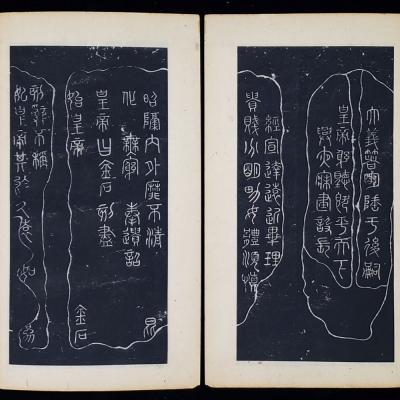 大義箸明陲于後嗣
皇帝躬聽既平天下
興夜寐建設長
經宣達遠近畢理
貴賤分明男女體順慎
昭隔內外靡不清
化無窮奉遺詔
皇帝曰金石刻盡
始皇帝 金石
刻辭不稱
始皇帝其於久遠也如